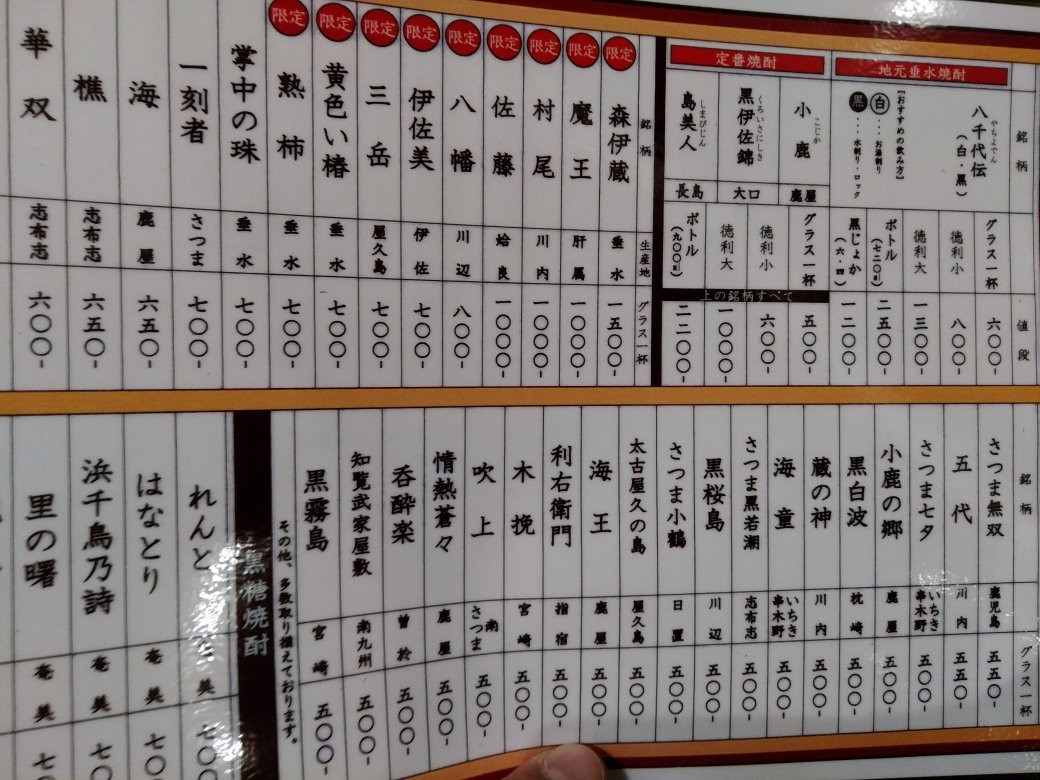 地元垂水焼酎
銘柄
八千代伝
やちよでん
（白・黒）
【おすすめの飲み方】
白・・・お湯割り
黒・・・水割り・ロック
値段
グラス一杯
六〇〇-
徳利小
八〇〇-
徳利大
一三〇〇-
ボトル（七二〇㎖）
二五〇〇-
黒じょか（六・四）
一二〇〇-
定番焼酎
小鹿
こじか
鹿屋
黒伊佐錦
くろいさにしき
大口
島美人
しまびじん
長島
グラス一杯
徳利小
徳利大
ボトル（九〇〇㎖）
上の銘柄すべて
五〇〇-
六〇〇-
一〇〇〇-
二二〇〇-
銘柄
生産地
グラス一杯
限定
森伊蔵
垂水
一五〇〇-
限定
魔王
肝属
一〇〇〇-
限定
村尾
川内
一〇〇〇-
限定
佐藤
蛤良
一〇〇〇-
限定
八幡
川辺
八〇〇-
限定
伊佐美
伊佐
七〇〇-
限定
三岳
屋久島
七〇〇-
限定
黄色い椿
垂水
七〇〇-
限定
熟柿
垂水
七〇〇-
掌中の珠
垂水
七〇〇-
一刻者
さつま
七〇〇-
海
鹿屋
六五〇-
樵
志布志
六五〇-
華双
志布志
六〇〇-
銘柄
グラス一杯
さつま無双
鹿児島
五五〇-
五代
川内
五五〇-
さつま七夕
いちき串木野
五〇〇-
小鹿の郷
鹿屋
五〇〇-
黒白波
枕崎
五〇〇-
蔵の神
川内
五〇〇-
海童
いちき串木野
五〇〇-
さつま黒若潮
志布志
五〇〇-
黒桜島
川辺
五〇〇-
さつま小鶴
日置
五〇〇-
太古屋久の島
屋久島
五〇〇-
海王
鹿屋
五〇〇-
利右衛門
指宿
五〇〇-
木挽
宮崎
五〇〇-
吹上
南さつま
五〇〇-
情熱蒼々
鹿屋
五〇〇-
呑酔楽
曽於
五〇〇-
知覧武家屋敷
南九州
五〇〇-
黒霧島
宮崎
五〇〇-
その他、多数取り揃えております。
黒糖焼酎
れんと
奄美
七〇〇
はなとり
奄美
七〇
浜千鳥乃詩
奄美
七〇
里の曙
奄美
七〇